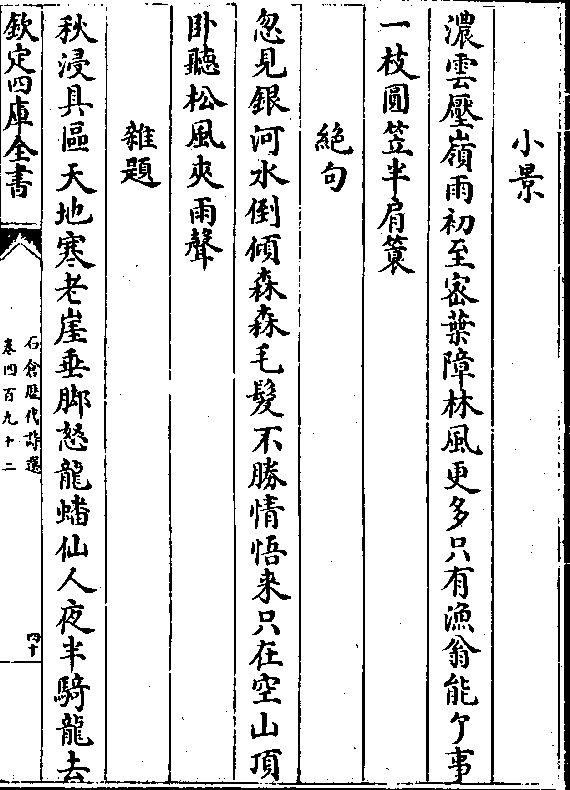 小景
濃雲壓嶺雨初至宻葉障林風更多只有漁翁能了事
一枝圓笠半肩簑
絶句
忽見銀河水倒傾森森毛髮不勝情悟来只在空山頂
卧聽松風夾雨聲
雜題
秋浸具區天地寒老崖垂脚怒龍蟠仙人夜半騎龍去
欽定四庫全書
石倉歴代詩選
卷四百九十二
四十